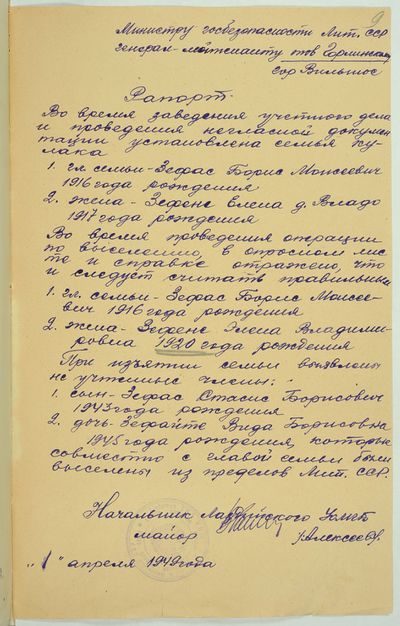 9
Министру госбезопасности Лит. ССР
генерал-лейтенанту тов Горлинскому
гор Вильнюс
Рапорт.
Во время заведения учетного дела
и проведения негласной докумен
тации установлена семья ку-
лака
1. гл. семьи - Зефас Борис Моисеевич
1916 года рождения
2. жена - Зефене Елена д. Владо
1917 года рождения
Во время проведения операции
по выселению, в опросном лис-
те и справке отражено, что
и следует считать правильным
1. гл. семьи - Зефас Борис Моисее-
вич 1916 года рождения
2. жена - Зефене Элена Владими-
ровна 1920 года рождения
При изъятии семьи выявлены
не учтенные члены:
1. сын - Зефас Стасис Борисович
1943 года рождения
2. дочь - Зефайте Вида Борисовна
1945 года рождения, которые
совместно с главой семьи были
выселены из пределов Лит. ССР.
Начальник
майор
/Алексеев/
"1" апреля 1949 года